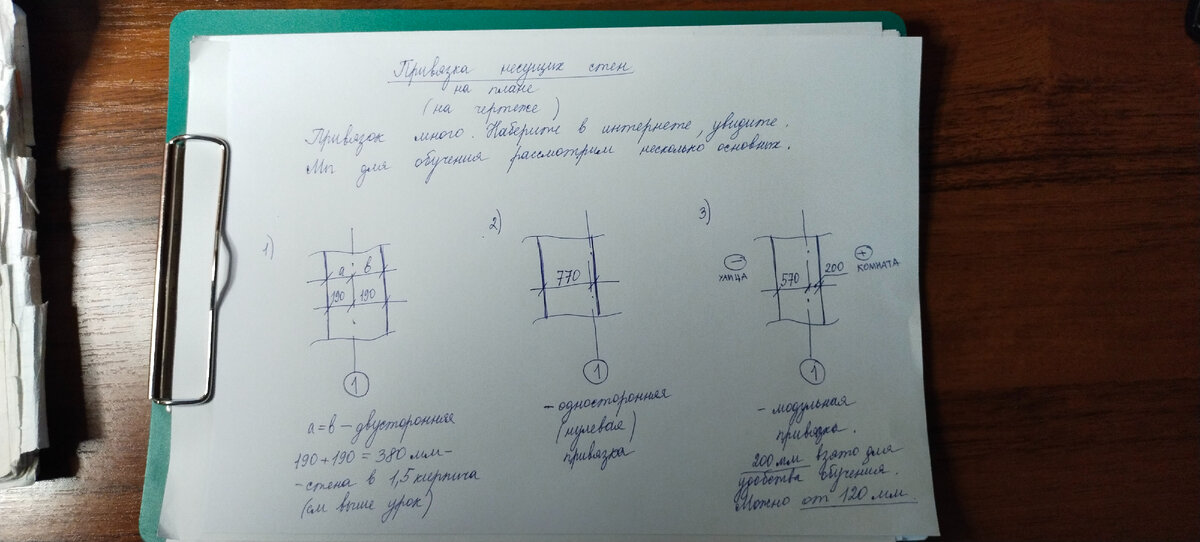 Привязка несущих стен
на плане
(на чертеже)
Привязок много. Наберите в интернете, увидите.
Мы для обучения рассмотрим несколько основных.
1)
a в
190 190
1
a = в – двусторонняя
190 + 190 = 380 мм –
– стена в 1,5 кирпича
(см выше урок)
2)
770
1
– односторонняя
(нулевая)
привязка
3)
– УЛИЦА
+ КОМНАТА
570 200
1
– модульная
привязка.
200 мм взято для
удобства обучения.
Можно от 120 мм.